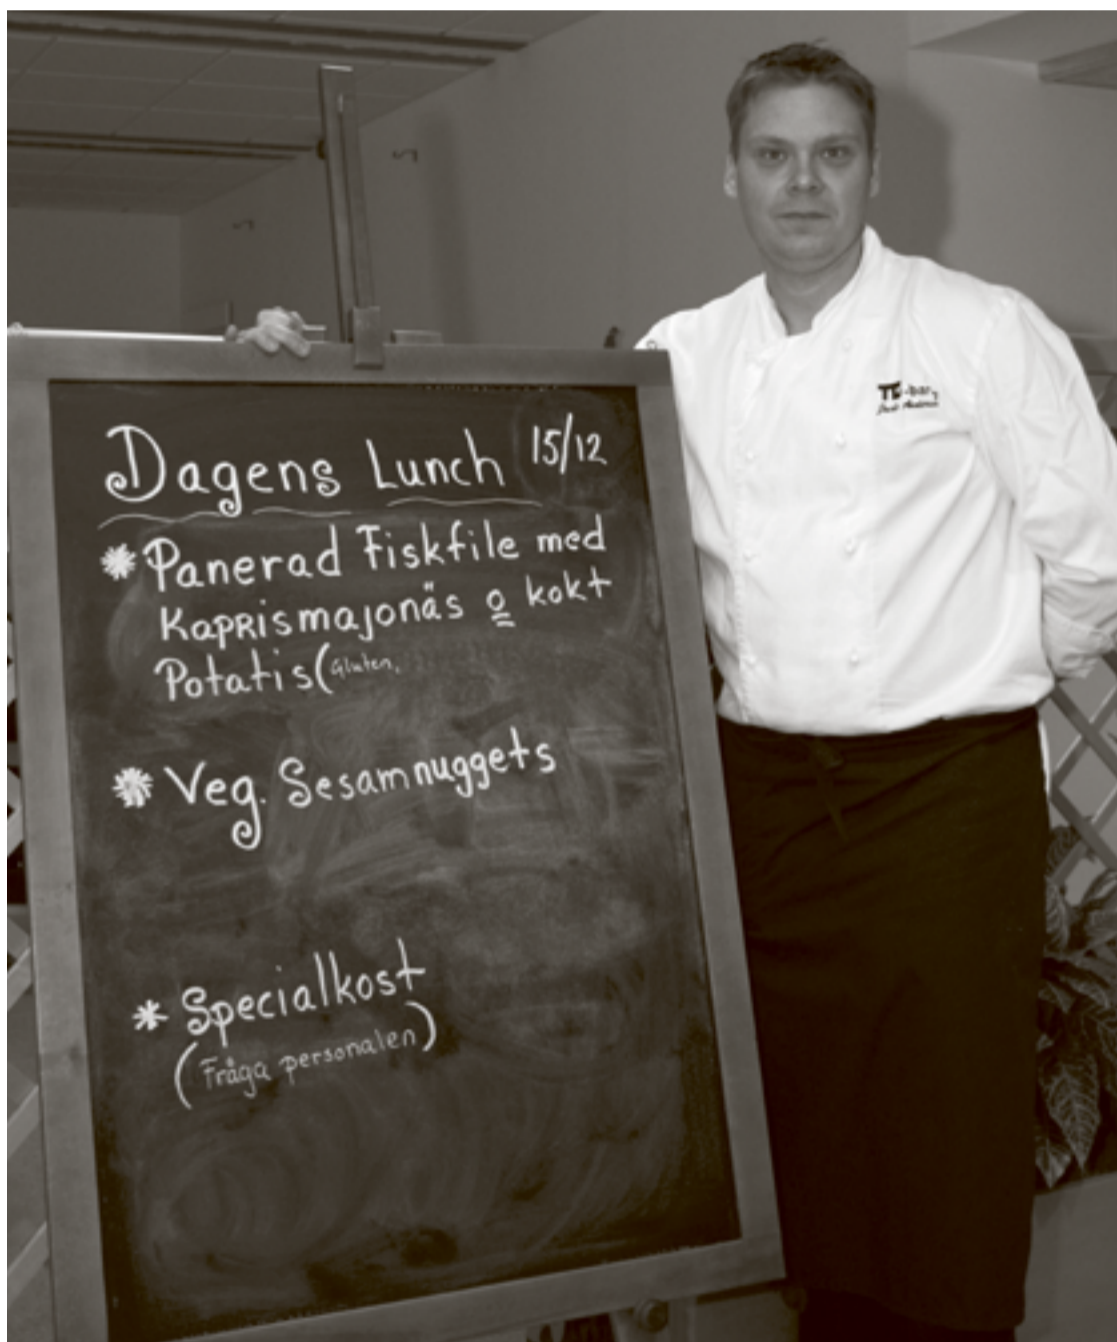 Dagens Lunch 15/12
* Panerad Fiskfile med
Kaprismajonäs o kokt
Potatis (Gluten,
* Veg. Sesamnuggets
* Specialkost
(Fråga personalen)